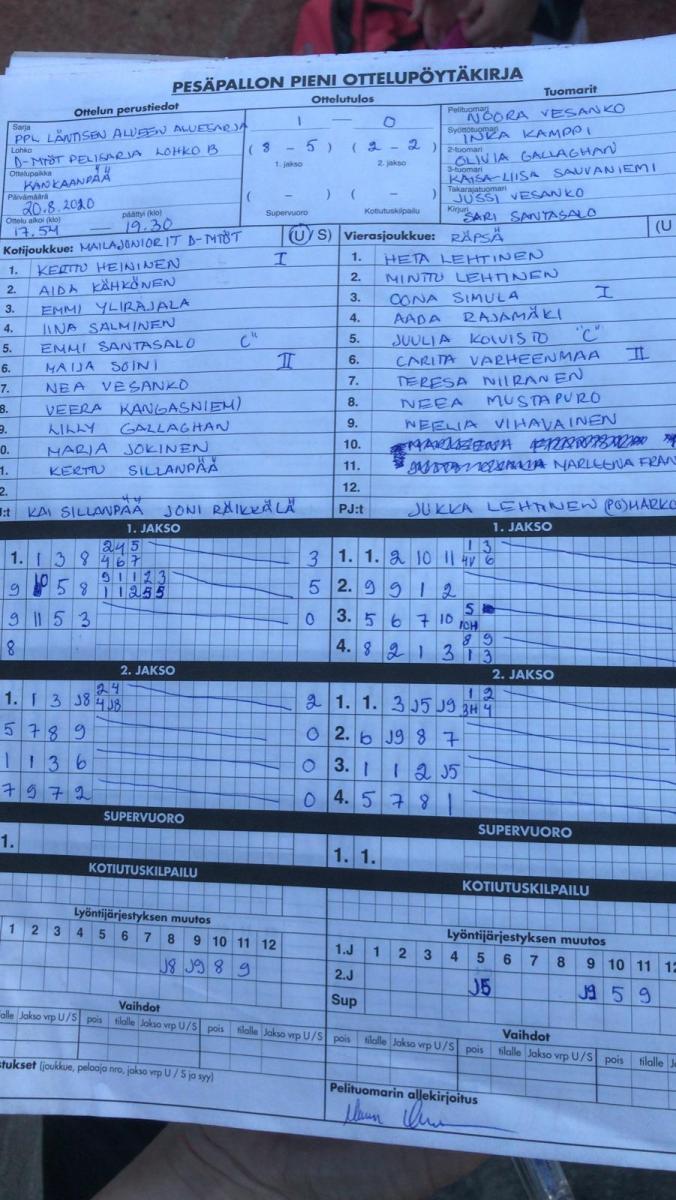 PESÄPALLON PIENI OTTELUPÖYTÄKIRJA
Ottelun perustiedot
Ottelutulos
Tuomarit
Sarja
PPL LÄNTISEN ALUEEN ALUESARJA
Lohko
D-MTÖT PELISARJA LOHKO B
Ottelupaikka
KANKAANPÄÄ
Päivämäärä
20.8.2020
Ottelu alkoi (klo) päättyi (klo)
17.54 — 19.30
1 — 0
( 8 - 5 ) ( 2 - 2 )
1. jakso 2. jakso
( - ) ( - )
Supervuoro Kotiutuskilpailu
Pelituomari
NOORA VESANKO
Syöttötuomari
INKA KAMPPI
2-tuomari
OLIVIA GALLAGHAN
3-tuomari
KAISA-LIISA SAUVANIEMI
Takarajatuomari
JUSSI VESANKO
Kirjuri
SARI SANTASALO
Kotijoukkue: MAILAJUNIORIT D-MTÖT (U/S)
1. KERTTU HEININEN I
2. AIDA KÄHKÖNEN
3. EMMI YLIRAJALA
4. IINA SALMINEN
5. EMMI SANTASALO C"
6. MAIJA SOINI II
7. NEA VESANKO
8. VEERA KANGASNIEMI
9. LILLY GALLAGHAN
0. MARJA JOKINEN
1. KERTTU SILLANPÄÄ
2.
J:t KAI SILLANPÄÄ JONI RÄIKKÄLÄ
Vierasjoukkue: RÄPSÄ (U
1. HETA LEHTINEN
2. MINTTU LEHTINEN
3. OONA SIMULA I
4. AADA RAJAMÄKI
5. JUULIA KOIVISTO "C"
6. CARITA VARHEENMAA II
7. TERESA NIIRANEN
8. NEEA MUSTAPURO
9. NEELIA VIHAVAINEN
10.
11. MARLEENA FRAN
12.
PJ:t JUKKA LEHTINEN (PG) MARKO
1. JAKSO
1. 1 3 8 2 4 5 3
4 6 7
9 10 5 8 9 1 1 2 3 5
1 1 2 5 5
9 11 5 3 0
8
1. JAKSO
1. 1. 2 10 11 1 3
4V 6
2. 9 9 1 2
3. 5 6 7 10 5
10H
4. 8 2 1 3 8 9
1 3
2. JAKSO
1. 1 3 J8 2 4 2
4 J8
5 7 8 9 0
1 1 3 6 0
7 9 7 2 0
2. JAKSO
1. 1. 3 J5 J9 1 2
3H 4
2. 6 J9 8 7
3. 1 1 2 J5
4. 5 7 8 1
SUPERVUORO
1.
SUPERVUORO
1. 1.
KOTIUTUSKILPAILU
KOTIUTUSKILPAILU
Lyöntijärjestyksen muutos
1 2 3 4 5 6 7 8 9 10 11 12
J8 J9 8 9
Lyöntijärjestyksen muutos
1.J 1 2 3 4 5 6 7 8 9 10 11 12
2.J J5 J9 5 9
Sup
Vaihdot
alle Jakso vrp U/S pois tilalle Jakso vrp U/S pois tilalle Jakso vrp U/S
Vaihdot
pois tilalle Jakso vrp U/S pois tilalle Jakso vrp U/S pois tilalle
stukset (joukkue, pelaaja nro, jakso vrp U / S ja syy)
Pelituomarin allekirjoitus